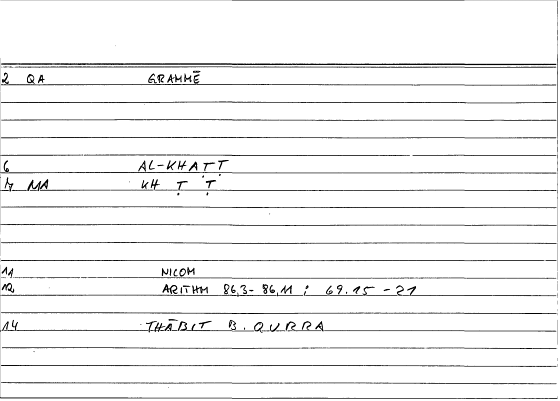 2 QA GRAMMĒ
6 AL-KHAṬṬ
7 MA KH Ṭ Ṭ
11 NICOM
12 ARITHM 86,3-86,11 ; 69.15-21
14 THĀBIT B. QURRA